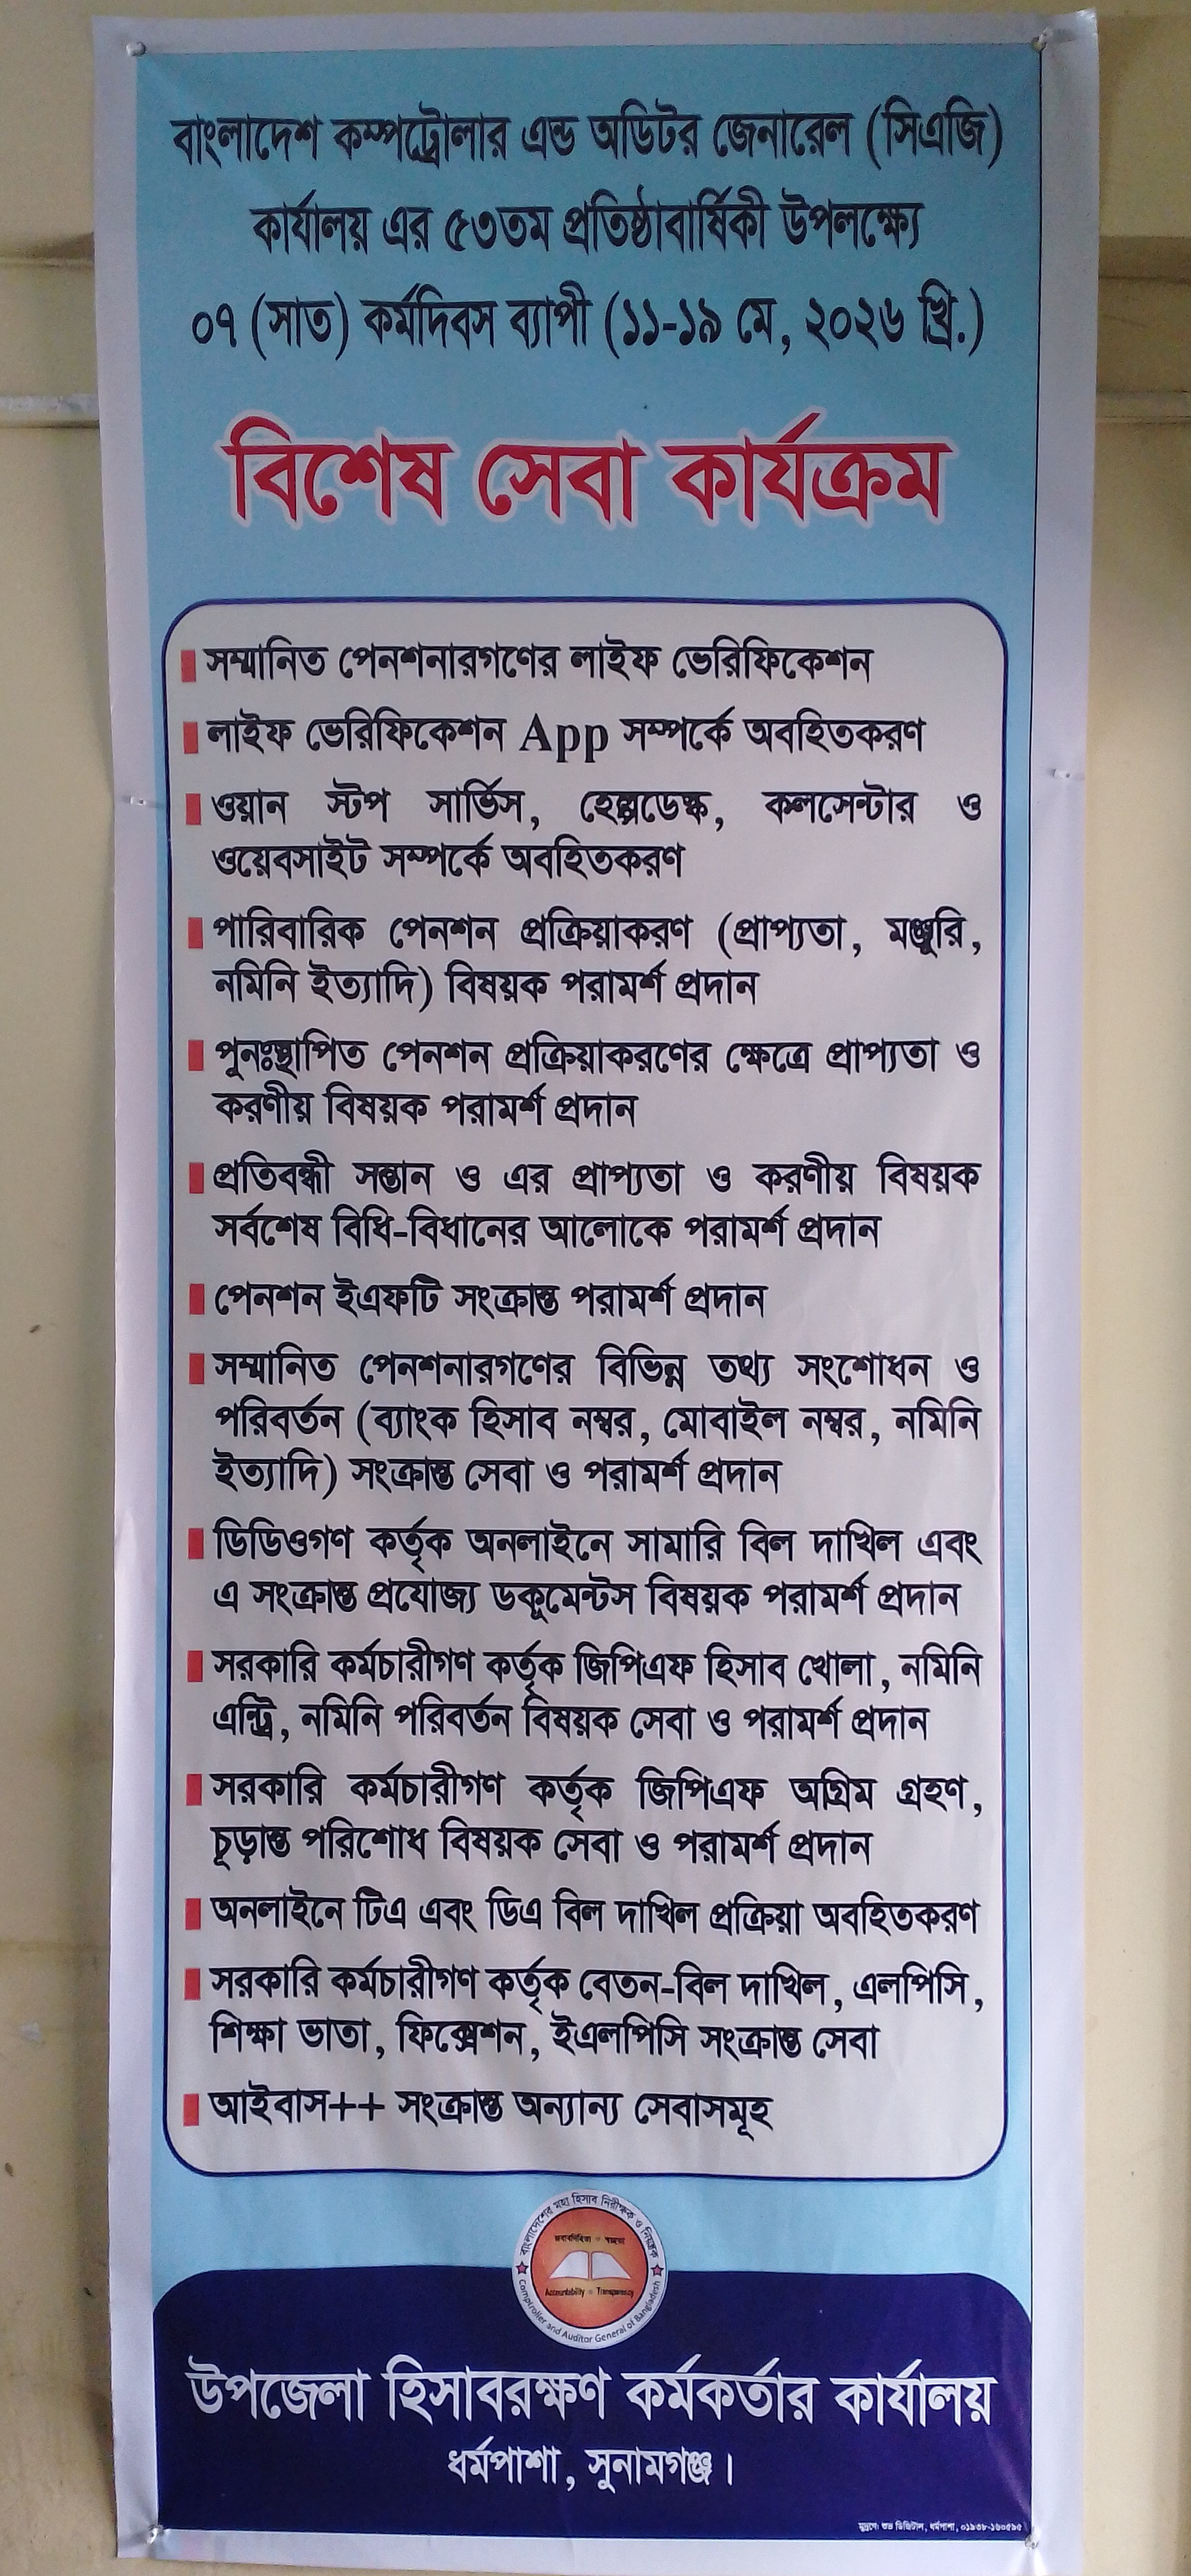 বাংলাদেশ কম্পট্রোলার এন্ড অডিটর জেনারেল (সিএজি)
কার্যালয় এর ৫৩তম প্রতিষ্ঠাবার্ষিকী উপলক্ষ্যে
০৭ (সাত) কর্মদিবস ব্যাপী (১১-১৯ মে, ২০২৬ খ্রি.)
বিশেষ সেবা কার্যক্রম
সম্মানিত পেনশনারগণের লাইফ ভেরিফিকেশন
লাইফ ভেরিফিকেশন App সম্পর্কে অবহিতকরণ
ওয়ান স্টপ সার্ভিস, হেল্পডেস্ক, কলসেন্টার ও
ওয়েবসাইট সম্পর্কে অবহিতকরণ
পারিবারিক পেনশন প্রক্রিয়াকরণ (প্রাপ্যতা, মঞ্জুরি,
নমিনি ইত্যাদি) বিষয়ক পরামর্শ প্রদান
পুনঃস্থাপিত পেনশন প্রক্রিয়াকরণের ক্ষেত্রে প্রাপ্যতা ও
করণীয় বিষয়ক পরামর্শ প্রদান
প্রতিবন্ধী সন্তান ও এর প্রাপ্যতা ও করণীয় বিষয়ক
সর্বশেষ বিধি-বিধানের আলোকে পরামর্শ প্রদান
পেনশন ইএফটি সংক্রান্ত পরামর্শ প্রদান
সম্মানিত পেনশনারগণের বিভিন্ন তথ্য সংশোধন ও
পরিবর্তন (ব্যাংক হিসাব নম্বর, মোবাইল নম্বর, নমিনি
ইত্যাদি) সংক্রান্ত সেবা ও পরামর্শ প্রদান
ডিডিওগণ কর্তৃক অনলাইনে সামারি বিল দাখিল এবং
এ সংক্রান্ত প্রযোজ্য ডকুমেন্টস বিষয়ক পরামর্শ প্রদান
সরকারি কর্মচারীগণ কর্তৃক জিপিএফ হিসাব খোলা, নমিনি
এন্ট্রি, নমিনি পরিবর্তন বিষয়ক সেবা ও পরামর্শ প্রদান
সরকারি কর্মচারীগণ কর্তৃক জিপিএফ অগ্রিম গ্রহণ,
চূড়ান্ত পরিশোধ বিষয়ক সেবা ও পরামর্শ প্রদান
অনলাইনে টিএ এবং ডিএ বিল দাখিল প্রক্রিয়া অবহিতকরণ
সরকারি কর্মচারীগণ কর্তৃক বেতন-বিল দাখিল, এলপিসি,
শিক্ষা ভাতা, ফিক্সেশন, ইএলপিসি সংক্রান্ত সেবা
আইবাস++ সংক্রান্ত অন্যান্য সেবাসমূহ
বাংলাদেশের মহা হিসাব নিরীক্ষক ও নিয়ন্ত্রক
জবাবদিহিতা স্বচ্ছতা
Accountability Transparency
Comptroller and Auditor General of Bangladesh
উপজেলা হিসাবরক্ষণ কর্মকর্তার কার্যালয়
ধর্মপাশা, সুনামগঞ্জ।
মুদ্রণে: শুভ ডিজিটাল, ধর্মপাশা,